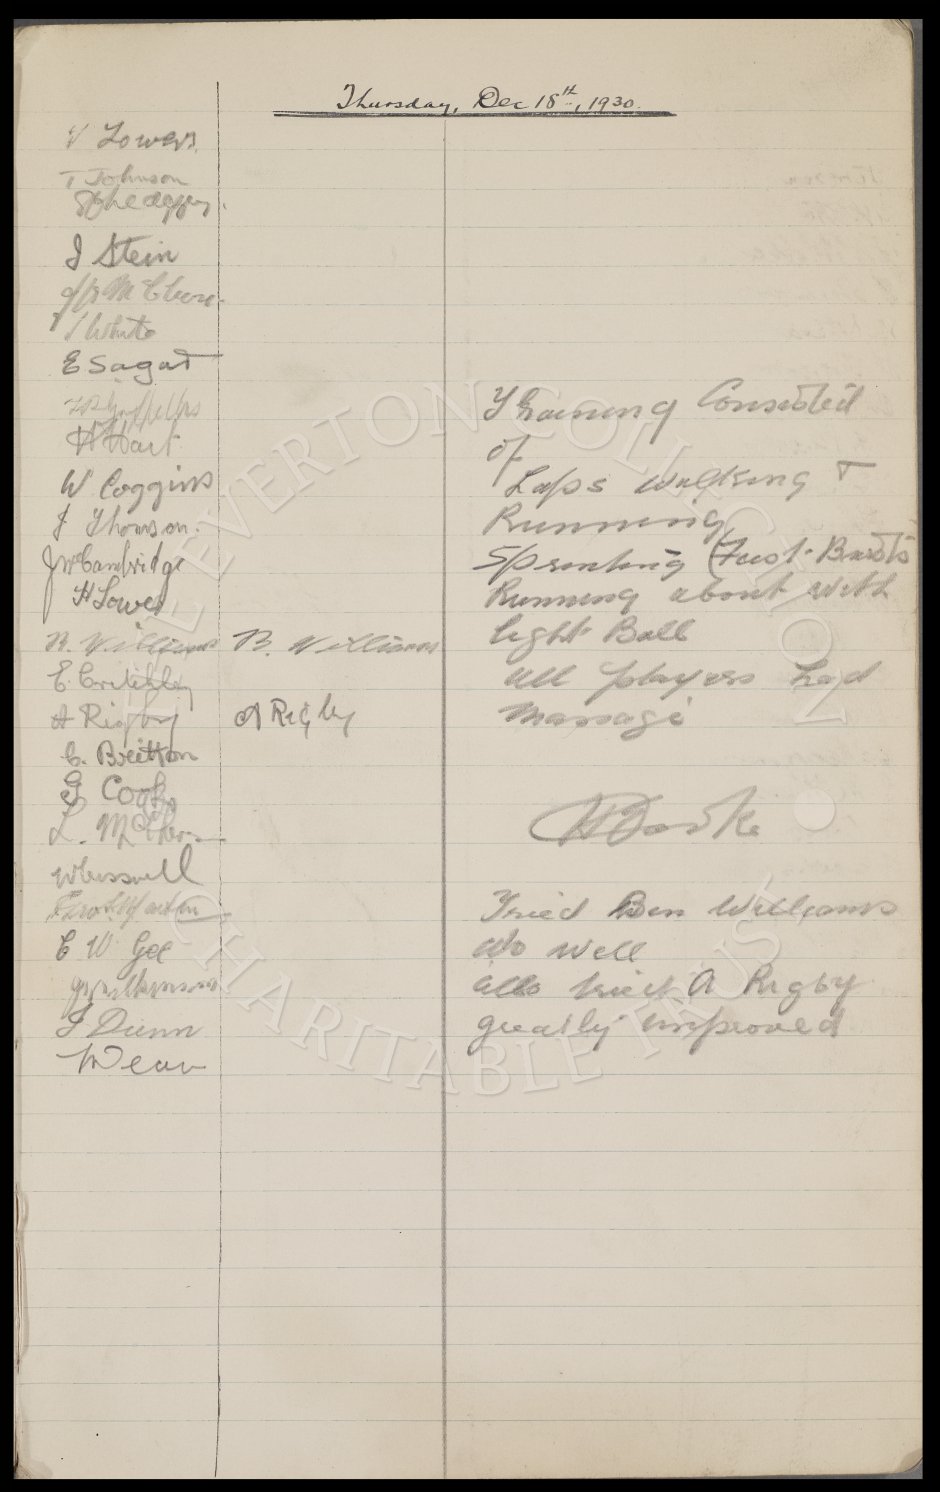 Thursday, Dec 18th, 1930.
V Lowers
T Johnson
J Stein
J P McClure
J White
E Sagar
H Hart
W Coggins
J Thomson
J W Cambridge
H Lowe
B. Williams B. Williams
E. Critchley
A Rigby A Rigby
C. Britton
G Cook
L.
W Bussell
C W Gee
J Dunn
W Dean
Training Consisted
of
Laps Walking +
Running
Sprinting (Fast Bursts
Running about with
light Ball
All players had
Massage
H Cooke
Tried Ben Williams
do well
also tried A Rigby
greatly improved
THE EVERTON COLLECTION
CHARITABLE TRUST